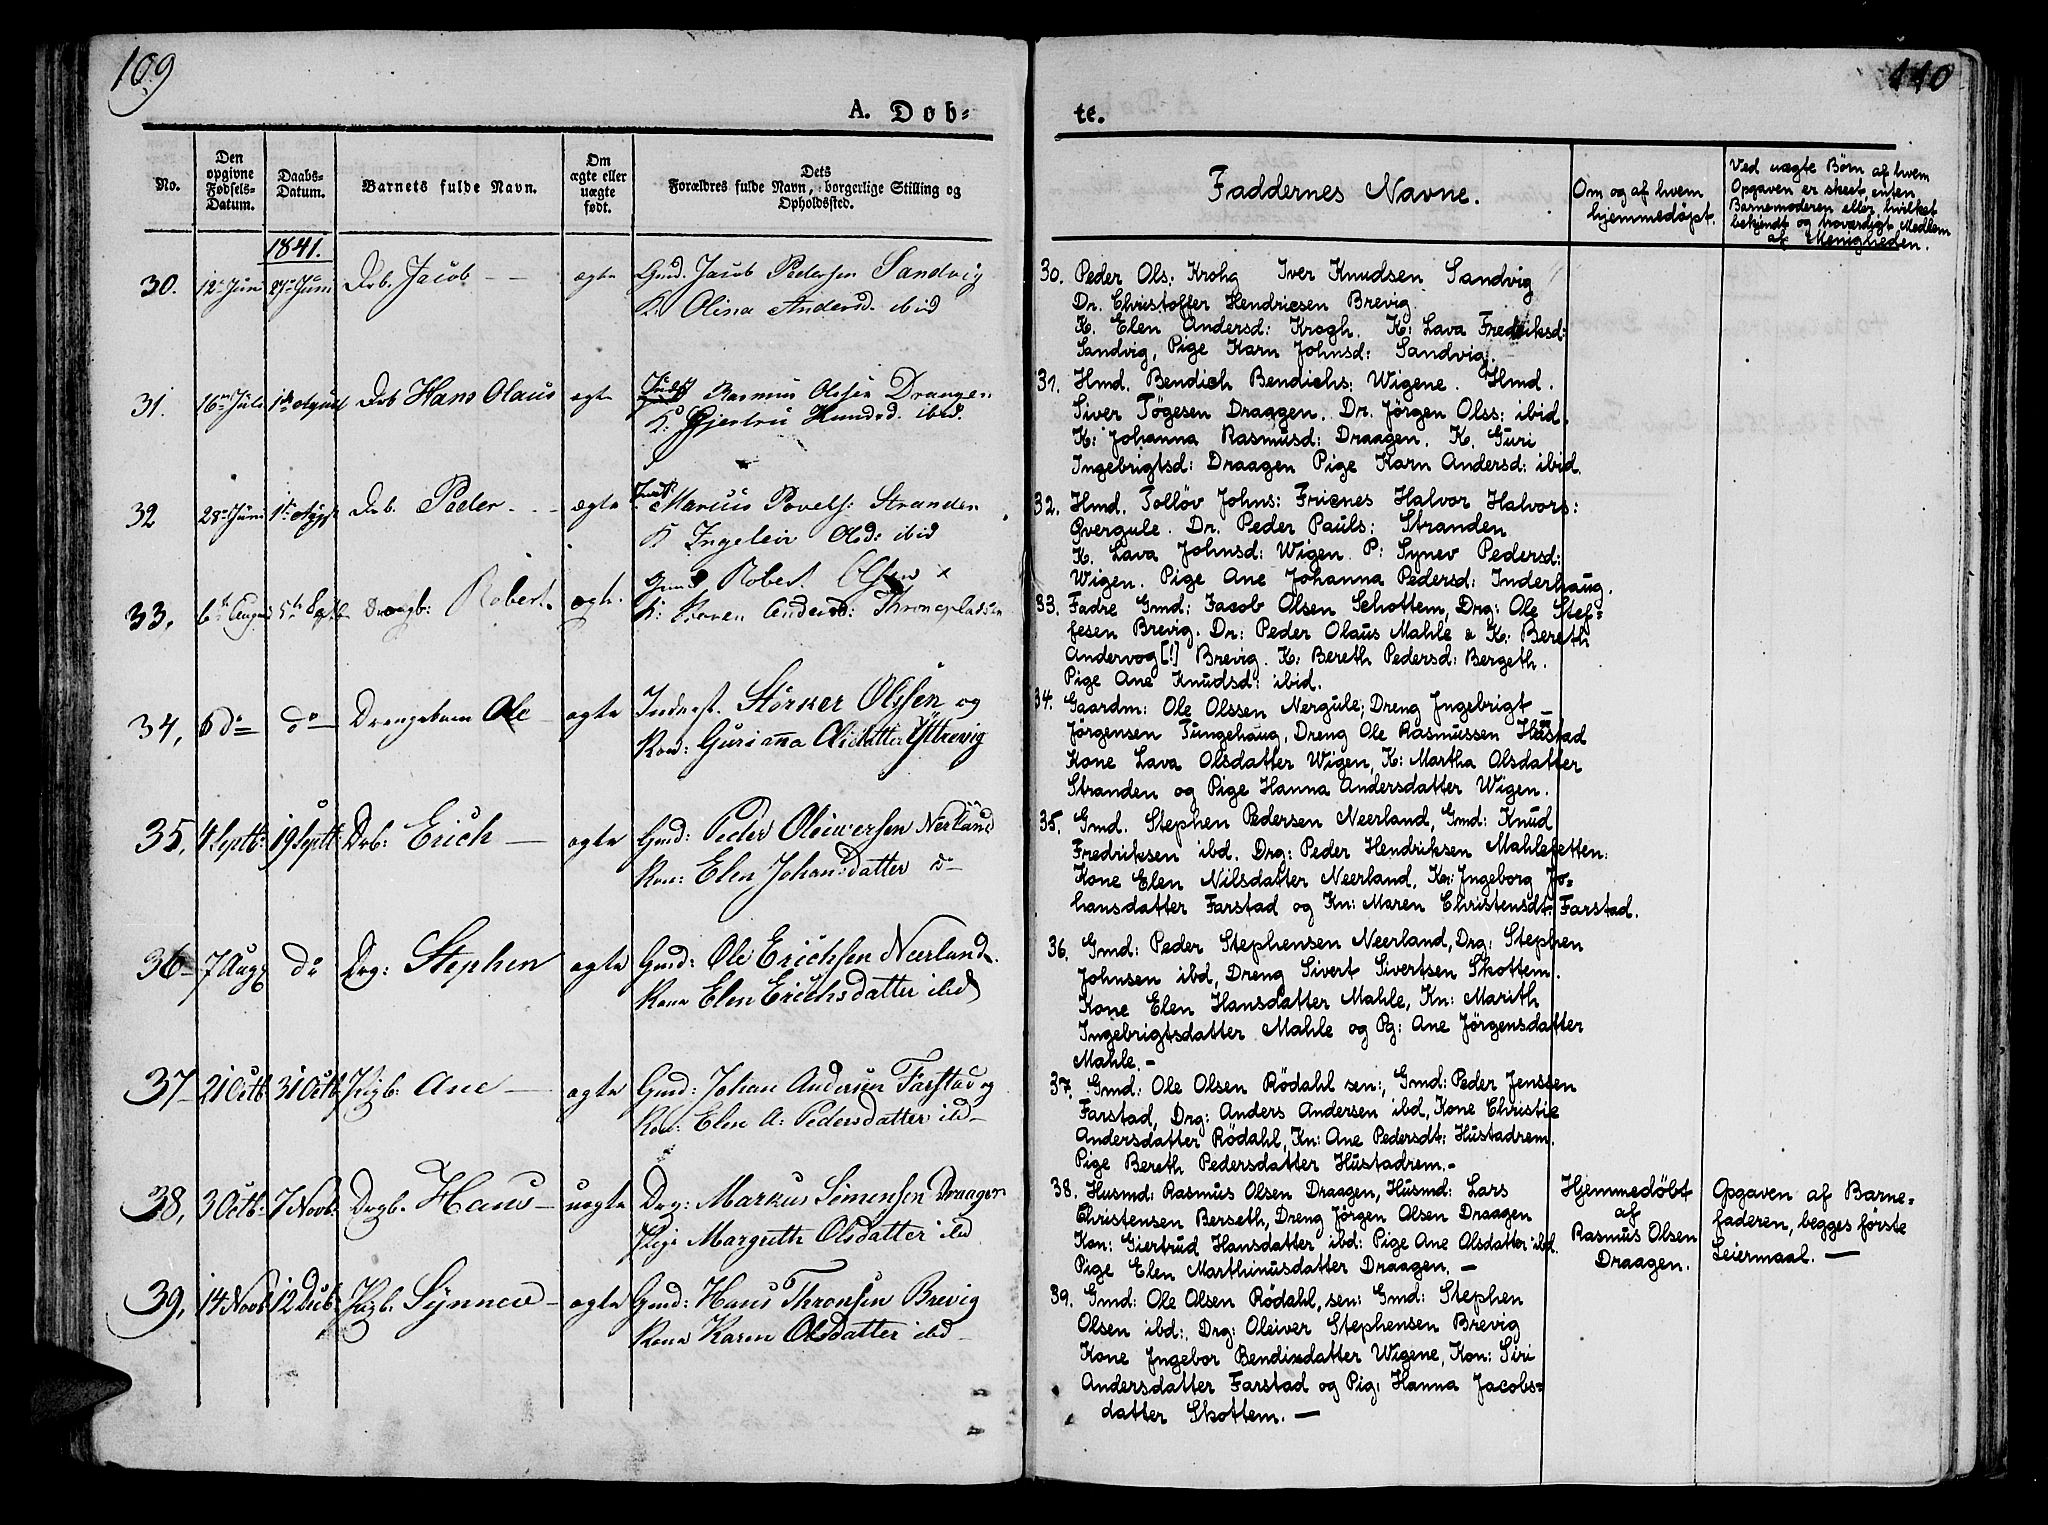 109
A. Døb-
No.
Den
opgivne
Fødsels-
Datum.
Daabs-
Datum.
Barnets fulde Navn.
Om
ægte eller
uægte
født.
Dets
Forældres fulde Navn, borgerlige Stilling og
Opholdssted.
1841.
30. 12te Juni 27de Juni Drb. Jacob — ægte Gmd. Jacob Pedersen Sandvig
K. Olina Andersd. ibid
31. 16de Juli 1ste August Drb Hans Olaus ægte Indst Rasmus Olsen Draagen
K: Gjertru Hansd. ibid.
32 28de Juni 1ste Augst Drb. Peder — ægte Indst. Marcus Povels: Stranden
K Ingeleiv Olsd: ibid
33, 6te August 5te Septb Drengb: Robert. ægte. Gmd Robert Olsen
K: Maren Andersd: Thronepladsen
34, 6 do do Drengebarn Ole ægte Inderst. Størker Olssen og
Kone: Gurianna Olsdatter Ytbrevig
35, 4 Septb: 19 Septb: Drb: Erich — ægte Gmd: Peder Oleiversen Nerland
Kon: Elen Johansdatter do
36 7 Aug do Drg: Stephen ægte Gmd: Ole Erichsen Neerland.
Kone Elen Erichsdatter ibd
37 21 Octb 31 Octb Pigb: Ane — ægte Gmd: Johan Andersen Farstad og
Kon: Elen A: Pedersdatter ibd
38, 3 Octb: 7 Novb: Drgb. Hans — uægte Drg: Markus Simensen Draagen
Pige Margreth Olsdatter ibd
39, 14 Novb 12 Decb: Pigb: Synnev — ægte Gmd: Hans Thronsen Brevig
Kone Karen Olsdatter ibd
110
te.
Faddernes Navne.
Om og af hvem
hjemmedøpt.
Ved uægte Børn af hvem
Opgaven er skeet, enten
Barnemoderen eller hvilket
bekjendt og troværdigt Medlem
af Menigheden.
30. Peder Ols: Krohg Iver Knudsen Sandvig
Dr. Christoffer Hendricsen Brevig
K. Elen Andersd: Krogh. K: Lava Fredriksd:
Sandvig, Pige Karn Johnsd: Sandvig.
31. Hmd. Bendich Bendichs: Wigene. Hmd.
Siver Tøgesen Draagen. Dr. Jörgen Olss: ibid.
K: Johanna Rasmusd: Draagen. K. Guri
Ingebrigtsd: Draagen Pige Karn Andersd: ibid.
32. Hmd. Tolløv Johns: Fricnes Halvor Halvors:
Qvergule. Dr. Peder Pauls: Stranden
K. Lava Johnsd: Wigen. P: Synev Pedersd:
Wigen. Pige Ane Johanna Pedersd: Inderhaug.
33. Fadre Gmd: Jacob Olsen Schottem, Drg: Ole Stef-
fesen Brevig. Dr: Peder Olaus Mahle & K: Bereth
Andervog [!] Brevig. K: Bereth Pedersd: Bergeth.
Pige Ane Knudsd: ibid.
34. Gaardm: Ole Olssen Nergule; Dreng Ingebrigt —
Jörgensen Tungehaug, Dreng Ole Rasmussen Hustad
Kone Lava Olsdatter Wigen, K: Martha Olsdatter
Stranden og Pige Hanna Andersdatter Wigen.
35. Gmd. Stephen Pedersen Neerland, Gmd: Knud
Fredriksen ibd. Drg: Peder Hendriksen Mahlesetten:
Kone Elen Nilsdatter Neerland, Kn: Ingeborg Jo-
hansdatter Farstad og Kn: Maren Christensdt: Farstad.
36. Gmd: Peder Stephensen Neerland, Drg: Stephen
Johnsen ibd, Dreng Sivert Sivertsen Skottem.
Kone Elen Hansdatter Mahle, Kn: Marith
Ingebrigtsdatter Mahle og Pg: Ane Jörgensdatter
Mahle. —
37. Gmd: Ole Olsen Rödahl sen:, Gmd: Peder Jenssen
Farstad, Drg: Anders Andersen ibd, Kone Christie
Andersdatter Rödahl, Kn: Ane Pedersdt: Hustadrem.
Pige Bereth Pedersdatter Hustadrem. —
38. Husmd: Rasmus Olsen Draagen, Husmd: Lars
Christensen Berseth, Dreng Jörgen Olsen Draagen
Kon: Giertrud Hansdatter ibd: Pige Ane Olsdatter ibd.
Pige Elen Marthinusdatter Draagen. —
Hjemmedøbt
af
Rasmus Olsen
Draagen.
Opgaven af Barne-
faderen, begges første
Leiermaal. —
39. Gmd: Ole Olsen Rödahl, sen: Gmd: Stephen
Olsen ibd:, Drg: Oleiver Stephensen Brevig
Kone Ingebor Bendixdatter Wigene, Kon: Siri
Andersdatter Farstad og Pig: Hanna Jacobs-
datter Skottem. —